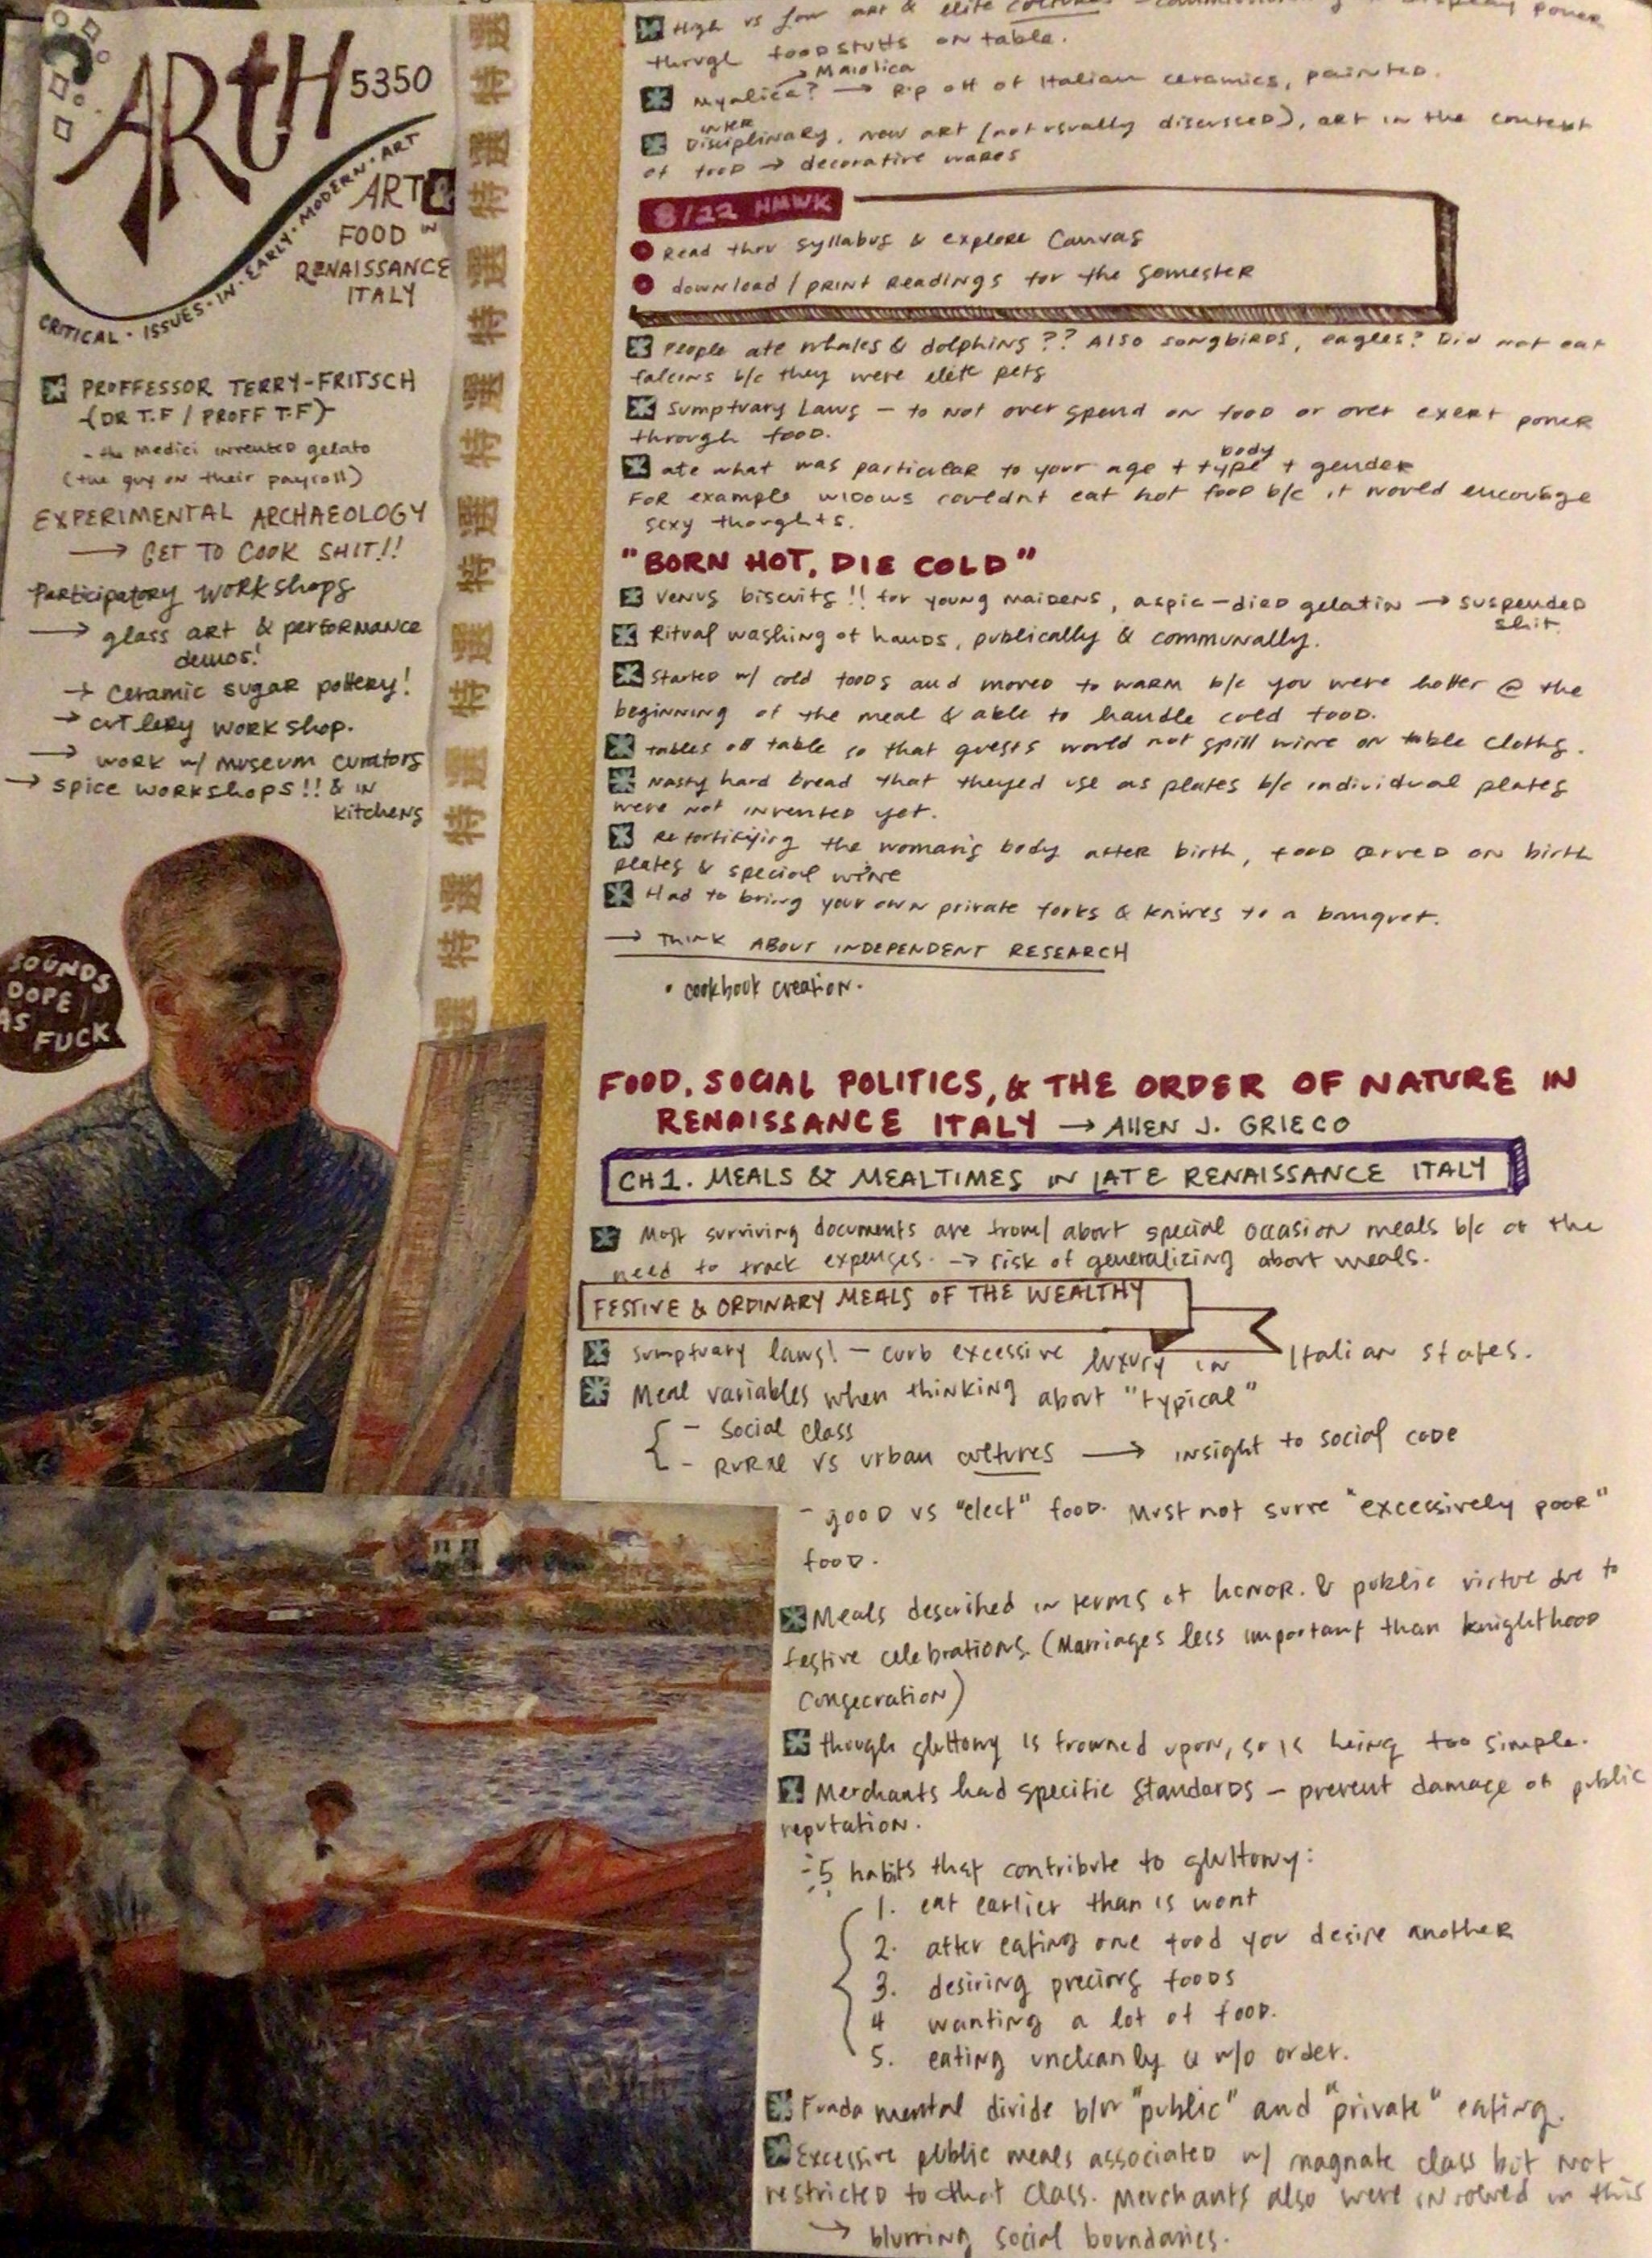 ARtH 5350
CRITICAL · ISSUES · IN · EARLY · MODERN · ART
ART &
FOOD IN
RENAISSANCE
ITALY
PROFFESSOR TERRY-FRITSCH
(DR T.F / PROFF T.F)
- the Medici invented gelato
(the guy on their payroll)
EXPERIMENTAL ARCHAEOLOGY
→ GET TO COOK SHIT!!
Participatory workshops
→ glass art & performance
demos!
→ ceramic sugar pottery!
→ cutlery workshop.
→ work w/ museum curators
→ spice workshops!! & in
kitchens
SOUNDS
DOPE
AS
FUCK
特選 特選 特選 特選 特選 特選 特選 特選
High vs low art & elite cultures - display power
through food stuffs on table.
→ Maiolica
Myalica? → Rip off of Italian ceramics, painted.
inter
Disciplinary, new art (not usually discussed), art in the context
of food → decorative wares
8/22 HMWK
Read thru syllabus & explore Canvas
download / print readings for the semester
People ate whales & dolphins ?? Also songbirds, eagles? Did not eat
falcons b/c they were elite pets
Sumptuary Laws - to not over spend on food or over exert power
through food.
body
ate what was particular to your age + type + gender
For example widows couldnt eat hot food b/c it would encourage
sexy thoughts.
"BORN HOT, DIE COLD"
Venus biscuits !! for young maidens, aspic-died gelatin → suspended
shit
Ritual washing of hands, publically & communally.
Started w/ cold foods and moved to warm b/c you were hotter @ the
beginning of the meal & able to handle cold food.
tables off table so that guests would not spill wine on table cloths.
Nasty hard bread that theyed use as plates b/c individual plates
were not invented yet.
Refortifying the woman's body after birth, food served on birth
plates & special wine
Had to bring your own private forks & knives to a banquet.
→ THINK ABOUT INDEPENDENT RESEARCH
• cookbook creation.
FOOD, SOCIAL POLITICS, & THE ORDER OF NATURE IN
RENAISSANCE ITALY → ALLEN J. GRIECO
CH1. MEALS & MEALTIMES IN LATE RENAISSANCE ITALY
Most surviving documents are from/about special occasion meals b/c of the
need to track expenses. → risk of generalizing about meals.
FESTIVE & ORDINARY MEALS OF THE WEALTHY
Sumptuary laws! - curb excessive luxury in Italian states.
Meal variables when thinking about "typical"
- social class
- rural vs urban cultures → insight to social code
- good vs "elect" food. Must not surve "excessively poor"
food.
Meals described in terms of honor. & public virtue due to
festive celebrations (Marriages less important than knighthood
consecration)
though gluttony is frowned upon, so is being too simple.
Merchants had specific standards - prevent damage of public
reputation.
5 habits that contribute to gluttony:
1. eat earlier than is wont
2. after eating one food you desire another
3. desiring precious foods
4 wanting a lot of food.
5. eating uncleanly & w/o order.
Fundamental divide b/w "public" and "private" eating.
Excessive public meals associated w/ magnate class but not
restricted to that class. Merchants also were involved in this
→ blurring social boundaries.